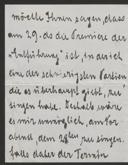 möchte Ihnen sagen, dass
am 29. ds die Première der
„Entführung" ist, in der ich
eine der schwierigsten Partien
die es überhaupt gibt, zu
singen habe. Deshalb wäre
es mir unmöglich, am Vor
abend, dem 28ten zu singen.
Falls daher der Termin